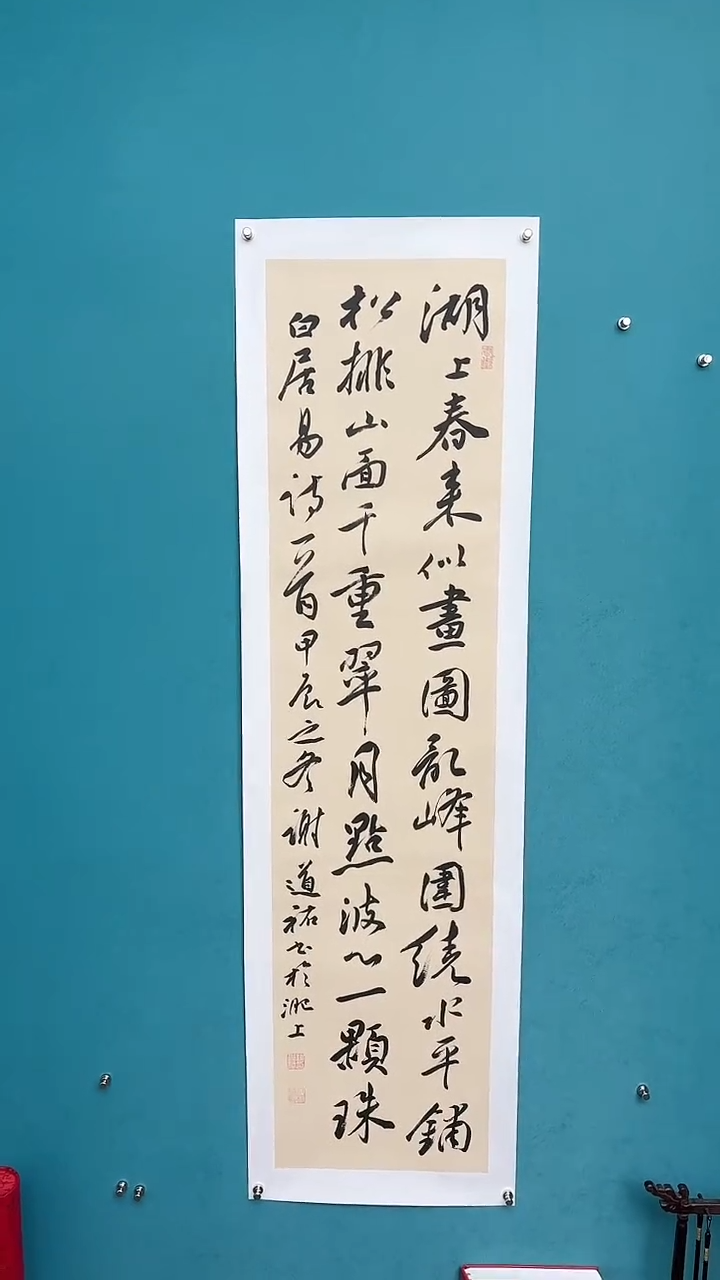 湖上春来似畫圖亂峰圍繞水平鋪
松排山面千重翠月點波心一顆珠
白居易詩一首甲辰之冬謝道祐书於淝上